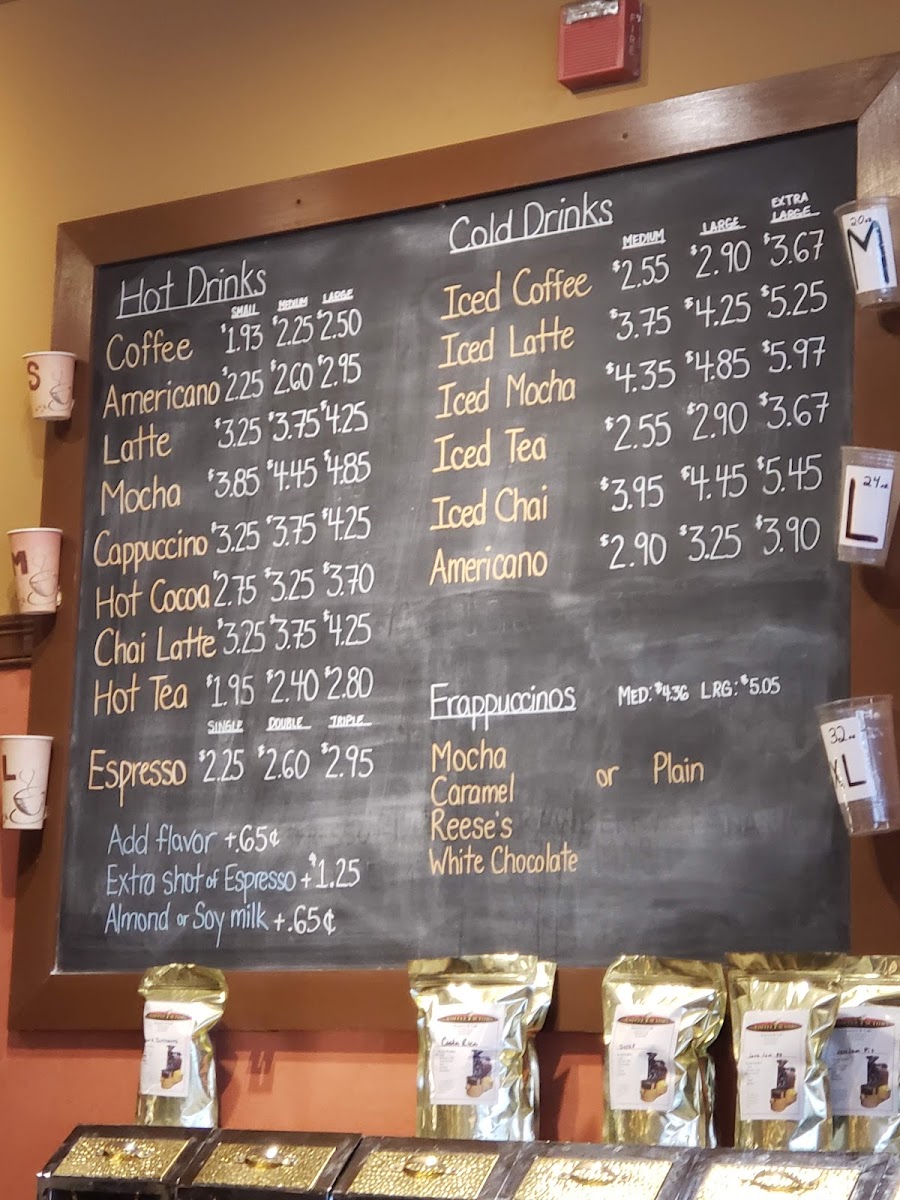 FIRE
Hot Drinks
SMALL MEDIUM LARGE
Coffee $1.93 $2.25 $2.50
Americano $2.25 $2.60 $2.95
Latte $3.25 $3.75 $4.25
Mocha $3.85 $4.45 $4.85
Cappuccino $3.25 $3.75 $4.25
Hot Cocoa $2.75 $3.25 $3.70
Chai Latte $3.25 $3.75 $4.25
Hot Tea $1.95 $2.40 $2.80
SINGLE DOUBLE TRIPLE
Espresso $2.25 $2.60 $2.95
Add flavor +.65¢
Extra shot of Espresso +$1.25
Almond or Soy milk +.65¢
Cold Drinks
MEDIUM LARGE EXTRA LARGE
Iced Coffee $2.55 $2.90 $3.67
Iced Latte $3.75 $4.25 $5.25
Iced Mocha $4.35 $4.85 $5.97
Iced Tea $2.55 $2.90 $3.67
Iced Chai $3.95 $4.45 $5.45
Americano $2.90 $3.25 $3.90
Frappuccinos MED: $4.36 LRG: $5.05
Mocha
Caramel or Plain
Reese's
White Chocolate
S
M
L
20oz
M
24oz
L
32oz
XL
Costa Rica